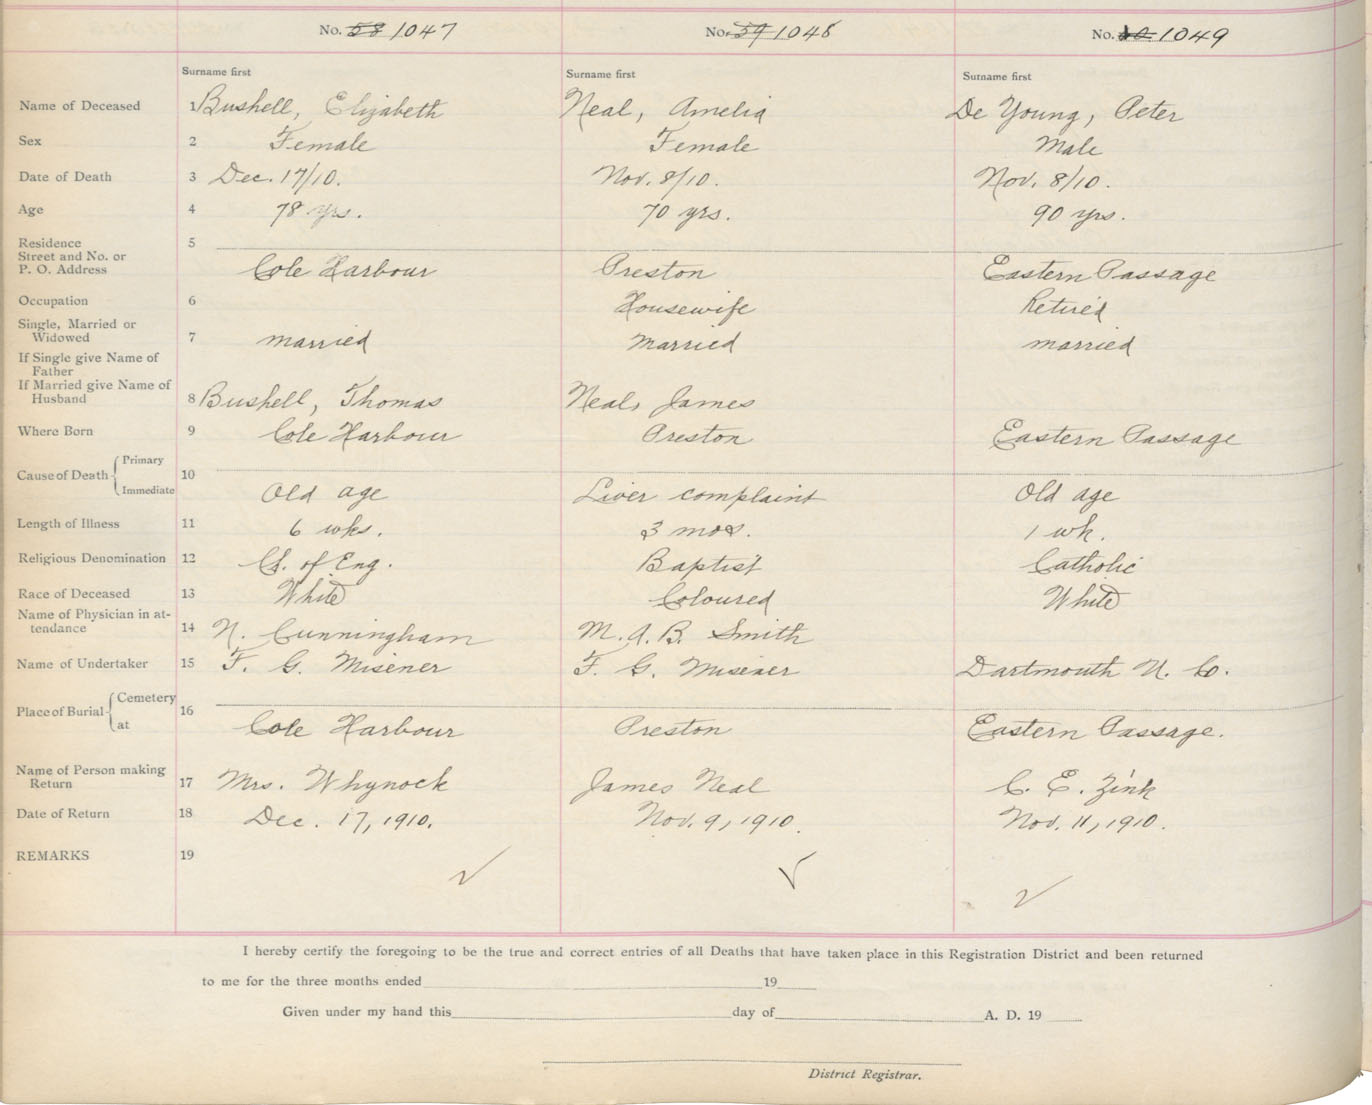 No. 58 1047 No. 59 1048 No. 60 1049
Surname first Surname first Surname first
Name of Deceased 1 Bushell, Elizabeth Neal, Amelia De Young, Peter
Sex 2 Female Female Male
Date of Death 3 Dec. 17/10. Nov. 8/10. Nov. 8/10.
Age 4 78 yrs. 70 yrs. 90 yrs.
Residence 5
Street and No. or
P. O. Address Cole Harbour Preston Eastern Passage
Occupation 6 Housewife Retired
Single, Married or
Widowed 7 married married married
If Single give Name of
Father
If Married give Name of
Husband 8 Bushell, Thomas Neal, James
Where Born 9 Cole Harbour Preston Eastern Passage
Primary
Cause of Death 10
Immediate Old age Liver complaint Old age
Length of Illness 11 6 wks. 3 mos. 1 wk.
Religious Denomination 12 Ch. of Eng. Baptist Catholic
Race of Deceased 13 White Coloured White
Name of Physician in at-
tendance 14 N. Cunningham M. A. B. Smith
Name of Undertaker 15 F. G. Misener F. G. Misener Dartmouth U. Co.
Cemetery
Place of Burial 16
at Cole Harbour Preston Eastern Passage.
Name of Person making
Return 17 Mrs. Whynock James Neal C. E. Zink
Date of Return 18 Dec. 17, 1910. Nov. 9, 1910. Nov. 11, 1910.
REMARKS 19
I hereby certify the foregoing to be the true and correct entries of all Deaths that have taken place in this Registration District and been returned
to me for the three months ended 19
Given under my hand this day of A. D. 19
District Registrar.